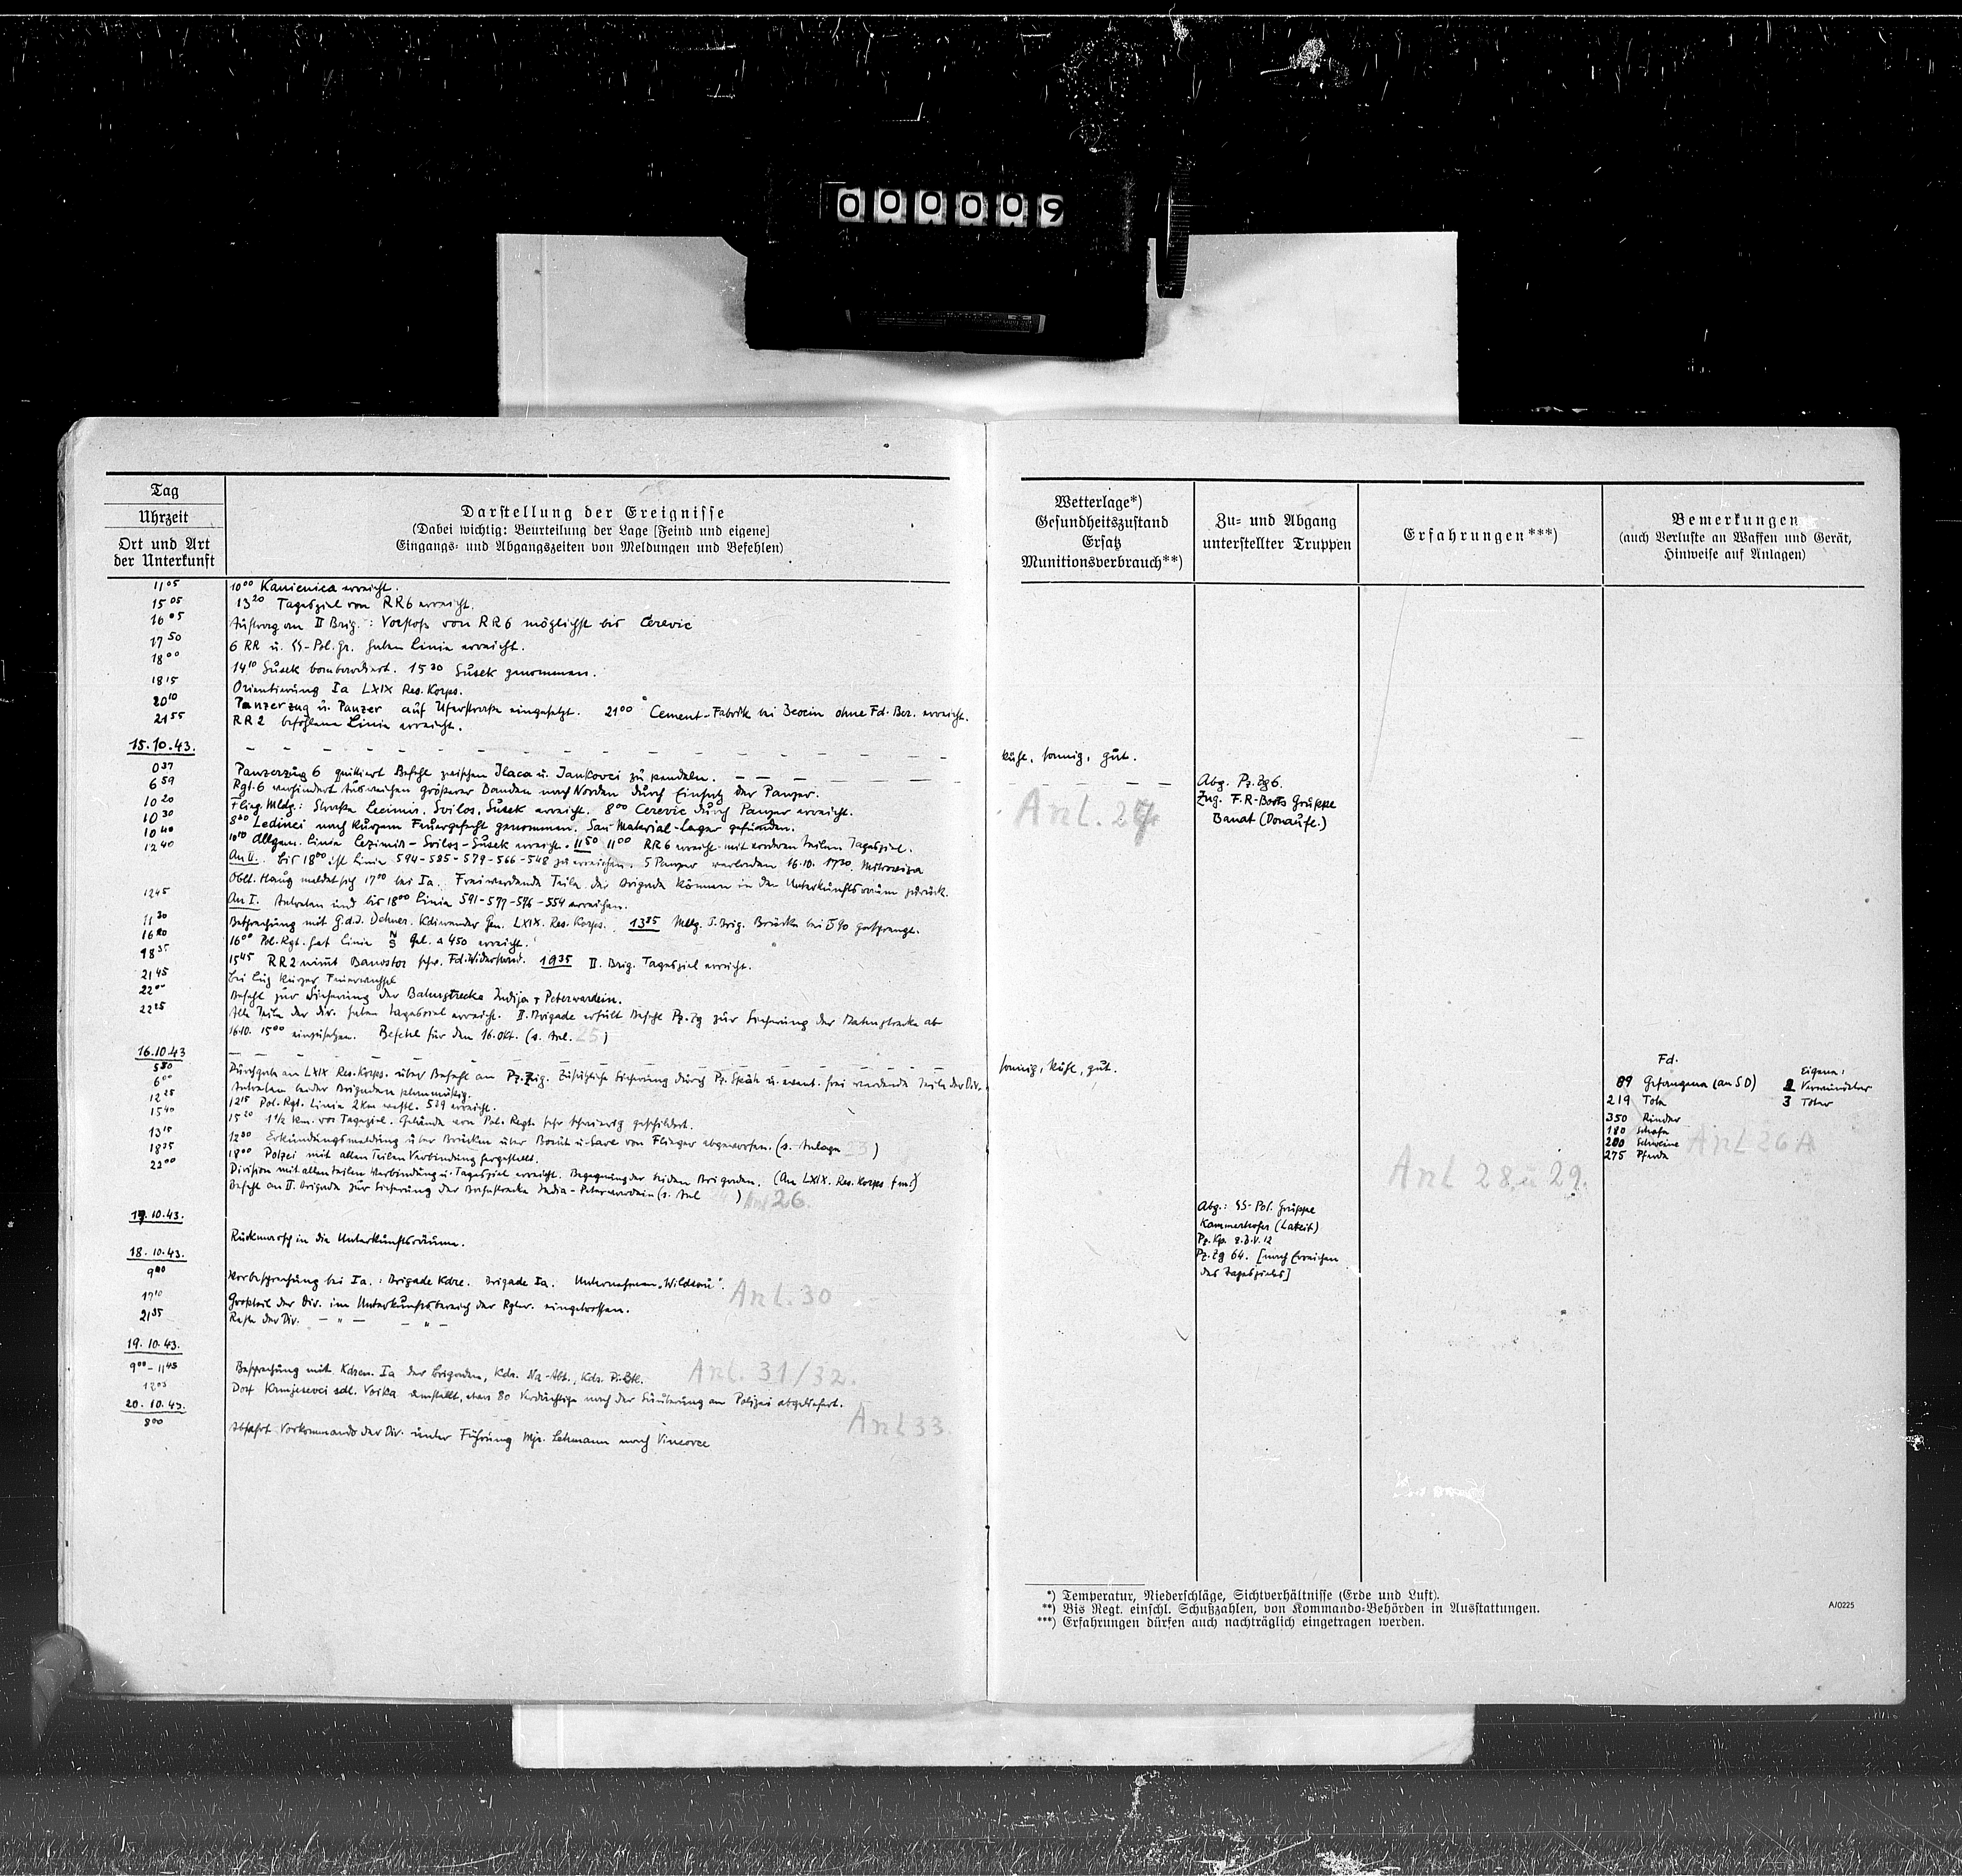 000009
Tag
Uhrzeit
Ort und Art
der Unterkunft
Darstellung der Ereignisse
(Dabei wichtig: Beurteilung der Lage [Feind und eigene]
Eingangs- und Abgangszeiten von Meldungen und Befehlen)
11 05 10 00 Kamenica erreicht.
15 05 13 20 Tagesziel von RR6 erreicht.
16 05 Auftrag an II Brig.: Vorstoß von RR6 möglichst bis Cerevic
17 50 6 RR u. SS-Pol. Gr. haben Linie erreicht.
18 00 14 10 Susek bombardiert. 15 30 Susek genommen.
18 15 Orientierung Ia LXIX Res. Korps.
20 10 Panzerzug u. Panzer auf Uferstraße eingesetzt. 21 00 Cement-Fabrik bei Beocin ohne Fd. Ber. erreicht.
21 55 RR2 befohlene Linie erreicht.
15.10.43.
0 37 Panzerzug 6 quittiert Befehl zwischen Ilaca u. Jankovci zu pendeln.
6 59 Rgt. 6 verhindert Ausweichen größerer Banden nach Norden durch Einsatz der Panzer.
10 20 Flieg. Mldg: Straße Lecimir, Svilos, Susek erreicht. 8 00 Cerevic durch Panzer erreicht.
10 30 8 30 Ledinci nach kurzem Feuergefecht genommen. San Material-Lager gefunden.
10 40 10 10 Allgem. Linie Lezimir - Svilos - Susek erreicht. 11 50 11 00 RR6 erreicht mit vorderen Teilen Tagesziel.
12 40 An II. bis 18 00 ist Linie 594-585-579-566-548 zu erreichen. 5 Panzer verladen 16.10. 17 30 Mitrovica
Oblt. Haug meldet sich 17 00 bei Ia. Freiwerdende Teile der Brigade können in den Unterkunftsraum zurück.
12 45 An I. Antreten und bis 18 00 Linie 591-577-576-554 erreichen.
11 30 Besprechung mit G.d.I. Dehner. Kdierender Gen. LXIX. Res. Korps. 13 25 Mldg. I. Brig. Brücke bei 590 gesprengt.
16 20 16 00 Pol. Rgt. hat Linie N S Gel. 450 erreicht.
18 35 15 45 RR2 nimmt Banostor schw. Fd. Widerstand. 19 35 II. Brig. Tagesziel erreicht.
21 45 bei Lug kurzer Feuerwechsel
22 00 Befehl zur Sicherung der Bahnstrecke Indija + Peterwardein.
22 25 Alle Teile der Div. haben Tagesziel erreicht. II. Brigade erhält Befehl Pz. Zg zur Sicherung der Bahnstrecke ab
16.10. 15 00 einzusetzen. Befehl für den 16. Okt. (s. Anl. 25)
16.10.43
5 50 Durchgabe an LXIX Res. Korps. über Befehl an Pz. Zug. Zusätzliche Sicherung durch Pz. Späh u. event. frei werdende Teile der Div.
6 00 Antreten beider Brigaden planmäßig.
12 25 12 15 Pol. Rgt. Linie 2 km westl. 529 erreicht.
15 40 15 20 1 1/2 km. vor Tagesziel. Gelände von Pol. Regt. sehr schwierig geschildert.
13 15 12 30 Erkundungsmeldung über Brücken über Bosut u. Save von Flieger abgeworfen. (s. Anlage )
18 25 18 00 Polizei mit allen Teilen Verbindung hergestellt.
22 00 Division mit allen Teilen Verbindung u. Tagesziel erreicht. Begegnung der beiden Brigaden. (An LXIX. Res. Korps fm.)
Befehl an II. Brigade zur Sicherung der Bahnstrecke India - Peterwardein (s. Anl ) Anl 26.
17.10.43.
Rückmarsch in die Unterkunftsräume.
18.10.43.
9 00 Vorbesprechung bei Ia.: Brigade Kdre. Brigade Ia. Unternehmen "Wildsau".
Anl. 30
17 10 Großteil der Div. im Unterkunftsbereich der Rgter. eingetroffen.
21 35 Reste der Div. — " — — " —
19.10.43.
9 00 - 11 45 Besprechung mit Kdren. Ia der Brigaden, Kdr. Na-Abt., Kdr. Pi. Btl. Anl. 31/32.
12 05 Dorf sdl. Voika umstellt, etwa 80 Verdächtige nach der Säuberung an Polizei abgeliefert.
20.10.43. Anl 33.
8 00 Abfahrt Vorkommando der Div. unter Führung Mjr. Lehmann nach Vincovce
Wetterlage*)
Gesundheitszustand
Ersatz
Munitionsverbrauch**)
Zu- und Abgang
unterstellter Truppen
Erfahrungen***)
Bemerkungen
(auch Verluste an Waffen und Gerät,
Hinweise auf Anlagen)
kühl, sonnig, gut.
Anl. 24
Abg. Pz. Zg 6.
Zug. F.R-Boots Gruppe
Banat (Donaufl.)
sonnig, kühl, gut.
Fd.
Eigene:
89 Gefangene (an SD) 2 Verwundete
219 Tote 3 Tote
350 Rinder
180 Schafe
200 Schweine
275 Pferde
Anl 26 A
Anl 28 u 29.
Abg.: SS-Pol. Gruppe
Kammerhofer (Lateit)
Pz. Kp. z.b.V. 12
Pz. Zg 64. [nach Erreichen
des Tageszieles]
*) Temperatur, Niederschläge, Sichtverhältnisse (Erde und Luft).
**) Bis Regt. einschl. Schußzahlen, von Kommando-Behörden in Ausstattungen.
***) Erfahrungen dürfen auch nachträglich eingetragen werden.
A/0225